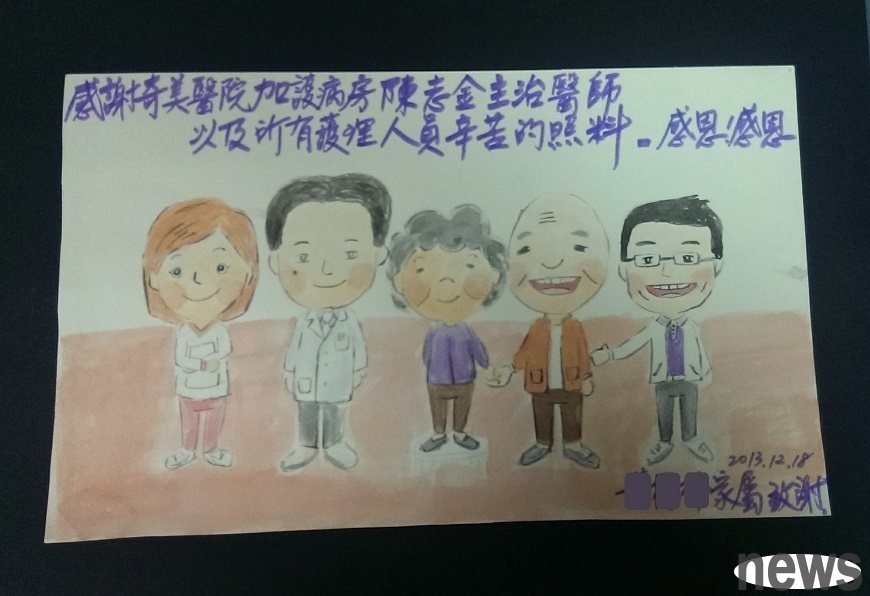 感謝奇美醫院加護病房陳志金主治醫師
以及所有護理人員辛苦的照料。感恩感恩
2013.12.18
家屬致謝
news